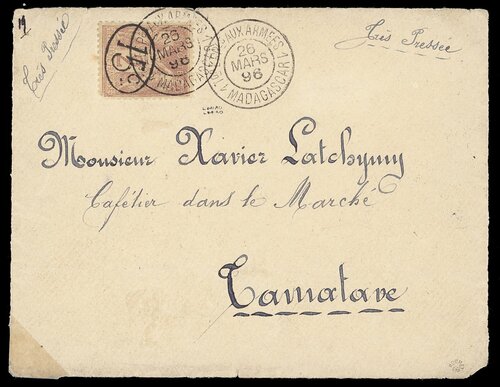 Très Pressée
Très Pressée
15c
AUX ARMÉES
26
MARS
96
MADAGASCAR
AUX ARMÉES
26
MARS
96
MADAGASCAR
Monsieur Xavier Latchymy
Cafétier dans le Marché
Tamatave